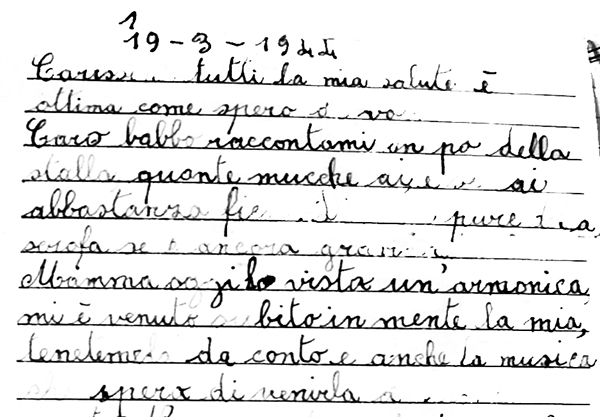 1
19-3-1944
tutti la mia salute è
ottima come spero
Caro babbo raccontami un po della
stalla quante mucche ai, e ai
abbastanza pure
scrofa se è ancora
Mamma oggi ho vista un'armonica
mi è venuto subito in mente la mia,
tenetemela da conto e anche la musica
spero di venirla a